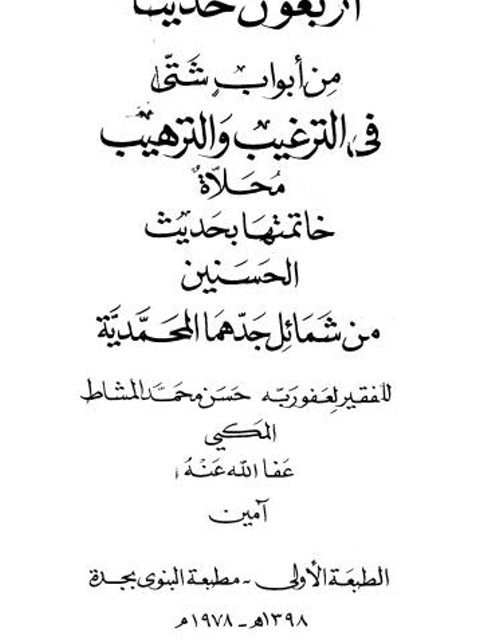 أربعون حديثا
من أبواب شتى
في الترغيب والترهيب
محلاة
خاتمتها بحديث
الحسنين
من شمائل جدهما المحمدية
للفقير لعفو ربه حسن محمد المشاط
المكي
عفا الله عنه
آمين
الطبعة الأولى - مطبعة البنوى بجدة
١٣٩٨هـ - ١٩٧٨م